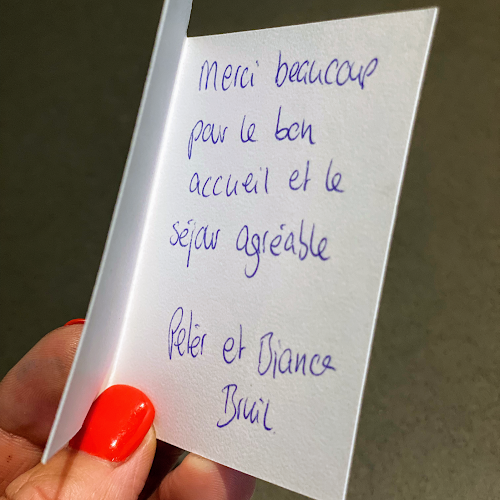 merci beaucoup
pour le bon
accueil et le
séjour agréable
Peter et Bianca
Bruil